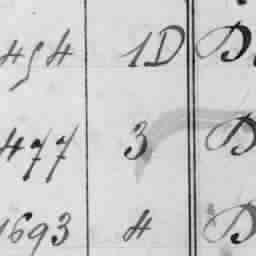 454 1D D
477 3 D
1693 4 D